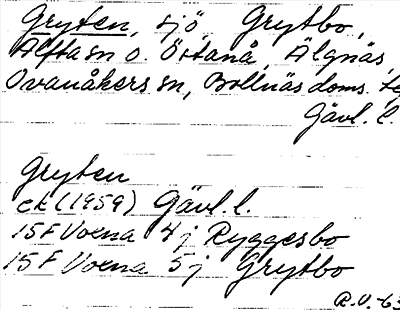 Gryten, sjö, Grytbo,
Alfta sn o. Östanå, Älgnäs,
Ovanåkers sn, Bollnäs doms.
Gävl. l.
Gryten
ek (1959) Gävl l.
15F Voxna 4j Ryggesbo
15F Voxna 5j Grytbo
R.V.-63